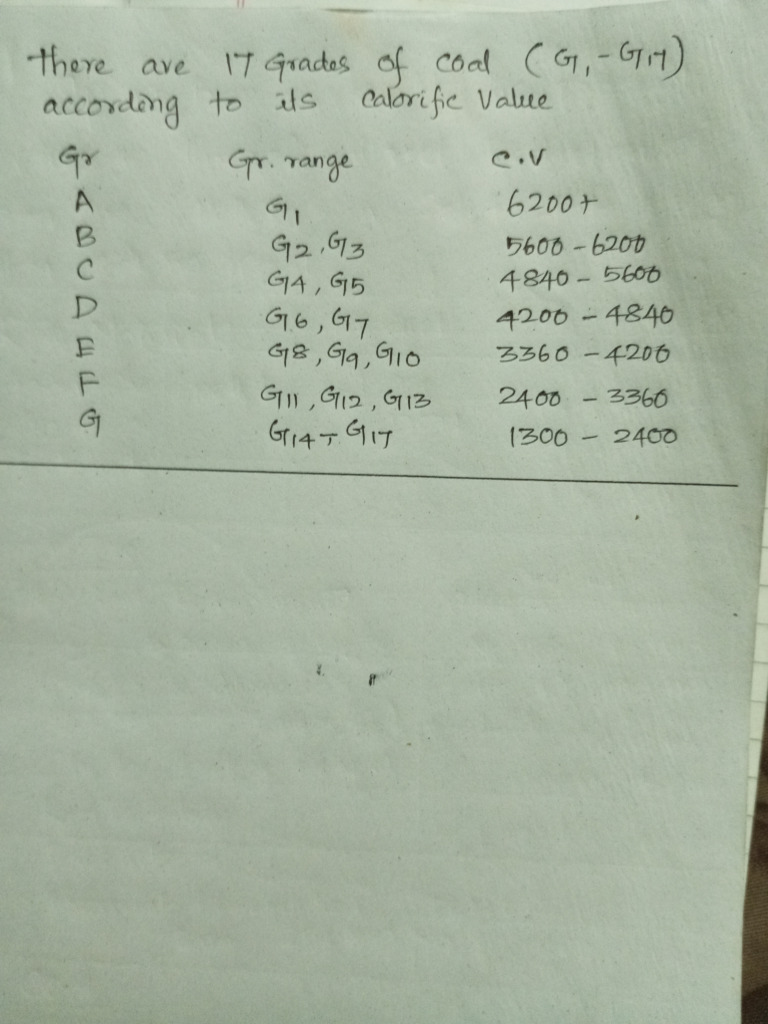 there are 17 Grades of coal (G1-G17)
according to its Calorific Value
Gr Gr. range C.V
A G1 6200+
B G2, G3 5600-6200
C G4, G5 4840 - 5600
D G6, G7 4200 - 4840
E G8, G9, G10 3360 - 4200
F G11, G12, G13 2400 - 3360
G G14 - G17 1300 - 2400